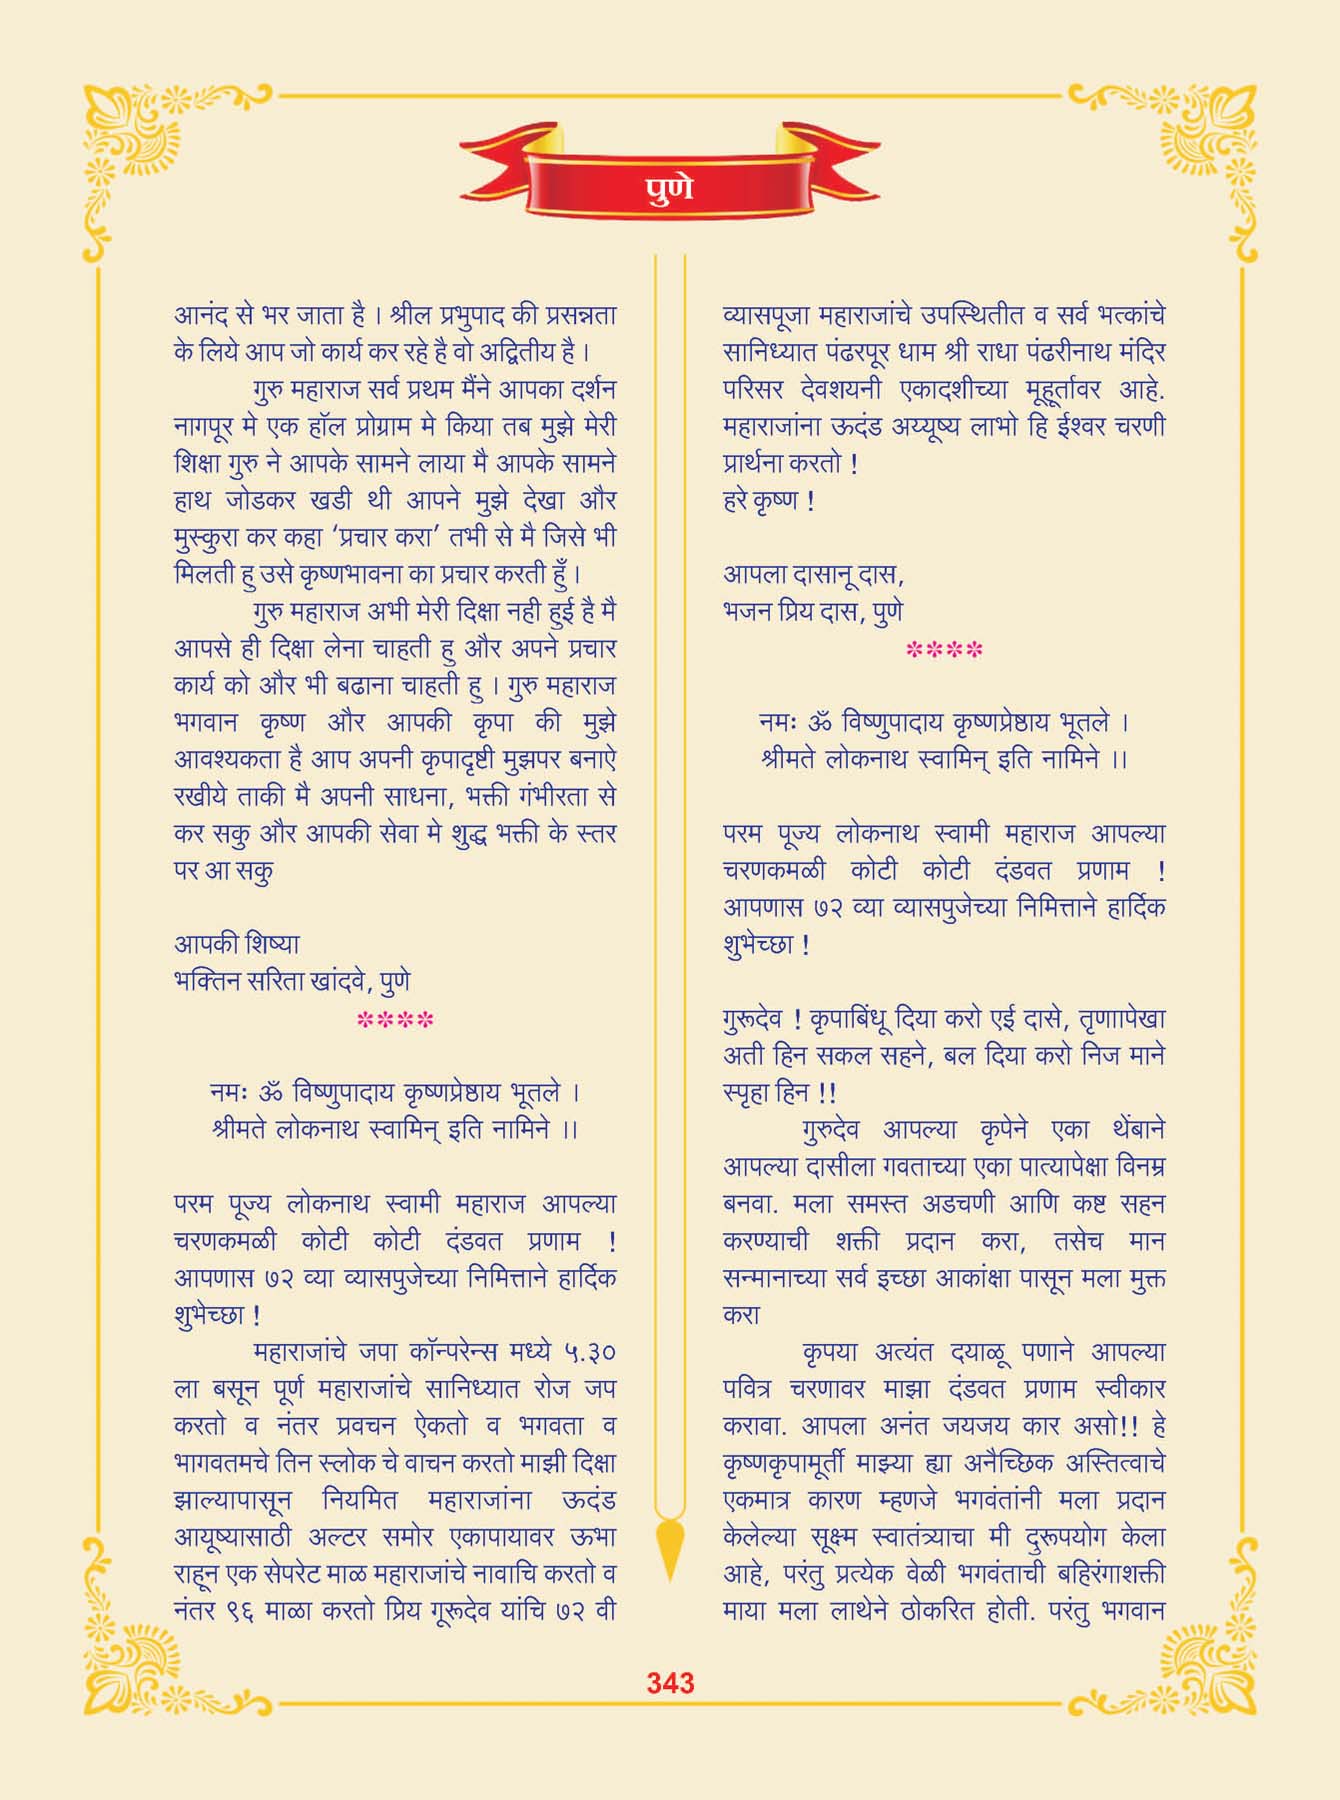 पुणे
आनंद से भर जाता है । श्रील प्रभुपाद की प्रसन्नता
के लिये आप जो कार्य कर रहे है वो अद्वितीय है ।
गुरु महाराज सर्व प्रथम मैंने आपका दर्शन
नागपूर मे एक हॉल प्रोग्राम मे किया तब मुझे मेरी
शिक्षा गुरु ने आपके सामने लाया मै आपके सामने
हाथ जोडकर खडी थी आपने मुझे देखा और
मुस्कुरा कर कहा ‘प्रचार करा’ तभी से मै जिसे भी
मिलती हु उसे कृष्णभावना का प्रचार करती हुँ ।
गुरु महाराज अभी मेरी दिक्षा नही हुई है मै
आपसे ही दिक्षा लेना चाहती हु और अपने प्रचार
कार्य को और भी बढाना चाहती हु । गुरु महाराज
भगवान कृष्ण और आपकी कृपा की मुझे
आवश्यकता है आप अपनी कृपादृष्टी मुझपर बनाऐ
रखीये ताकी मै अपनी साधना, भक्ती गंभीरता से
कर सकु और आपकी सेवा मे शुद्ध भक्ती के स्तर
पर आ सकु
आपकी शिष्या
भक्तिन सरिता खांदवे, पुणे
****
नमः ॐ विष्णुपादाय कृष्णप्रेष्ठाय भूतले ।
श्रीमते लोकनाथ स्वामिन् इति नामिने ।।
परम पूज्य लोकनाथ स्वामी महाराज आपल्या
चरणकमळी कोटी कोटी दंडवत प्रणाम !
आपणास ७२ व्या व्यासपुजेच्या निमित्ताने हार्दिक
शुभेच्छा !
महाराजांचे जपा कॉन्परेन्स मध्ये ५.३०
ला बसून पूर्ण महाराजांचे सानिध्यात रोज जप
करतो व नंतर प्रवचन ऐकतो व भगवता व
भागवतमचे तिन स्लोक चे वाचन करतो माझी दिक्षा
झाल्यापासून नियमित महाराजांना ऊदंड
आयूष्यासाठी अल्टर समोर एकापायावर ऊभा
राहून एक सेपरेट माळ महाराजांचे नावाचि करतो व
नंतर ९६ माळा करतो प्रिय गूरूदेव यांचि ७२ वी
व्यासपूजा महाराजांचे उपस्थितीत व सर्व भत्कांचे
सानिध्यात पंढरपूर धाम श्री राधा पंढरीनाथ मंदिर
परिसर देवशयनी एकादशीच्या मूहूर्तावर आहे.
महाराजांना ऊदंड अय्यूष्य लाभो हि ईश्वर चरणी
प्रार्थना करतो !
हरे कृष्ण !
आपला दासानू दास,
भजन प्रिय दास, पुणे
****
नमः ॐ विष्णुपादाय कृष्णप्रेष्ठाय भूतले ।
श्रीमते लोकनाथ स्वामिन् इति नामिने ।।
परम पूज्य लोकनाथ स्वामी महाराज आपल्या
चरणकमळी कोटी कोटी दंडवत प्रणाम !
आपणास ७२ व्या व्यासपुजेच्या निमित्ताने हार्दिक
शुभेच्छा !
गुरूदेव ! कृपाबिंधू दिया करो एई दासे, तृणाापेखा
अती हिन सकल सहने, बल दिया करो निज माने
स्पृहा हिन !!
गुरुदेव आपल्या कृपेने एका थेंबाने
आपल्या दासीला गवताच्या एका पात्यापेक्षा विनम्र
बनवा. मला समस्त अडचणी आणि कष्ट सहन
करण्याची शक्ती प्रदान करा, तसेच मान
सन्मानाच्या सर्व इच्छा आकांक्षा पासून मला मुक्त
करा
कृपया अत्यंत दयाळू पणाने आपल्या
पवित्र चरणावर माझा दंडवत प्रणाम स्वीकार
करावा. आपला अनंत जयजय कार असो!! हे
कृष्णकृपामूर्ती माझ्या ह्या अनैच्छिक अस्तित्वाचे
एकमात्र कारण म्हणजे भगवंतांनी मला प्रदान
केलेल्या सूक्ष्म स्वातंत्र्याचा मी दुरूपयोग केला
आहे, परंतु प्रत्येक वेळी भगवंताची बहिरंगाशक्ती
माया मला लाथेने ठोकरित होती. परंतु भगवान
343